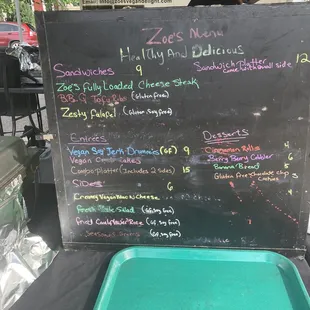 Zoe's Menu
Healthy And Delicious
Sandwiches 9
Sandwich platter 12
come with small side
Zoe's Fully Loaded Cheese Steak
B.B.Q Tofu Ribs (Gluten free)
Zesty Falafel (Gluten, Soy free)
Entrées
Vegan Soy Jerk Drummies (GF) 9
Vegan Cakes
Combo platter (includes 2 sides) 15
Sides 6
Creamy Vegan Mac N Cheese
Fresh Kale Salad (GF, soy free)
Fried Rice (GF, soy free)
Seasonal (GF, soy free)
Desserts
Cinnamon Rolls 4
Berry Berry Cobbler 6
Banana Bread 5
Gluten Free Chocolate chip 3
Cookies